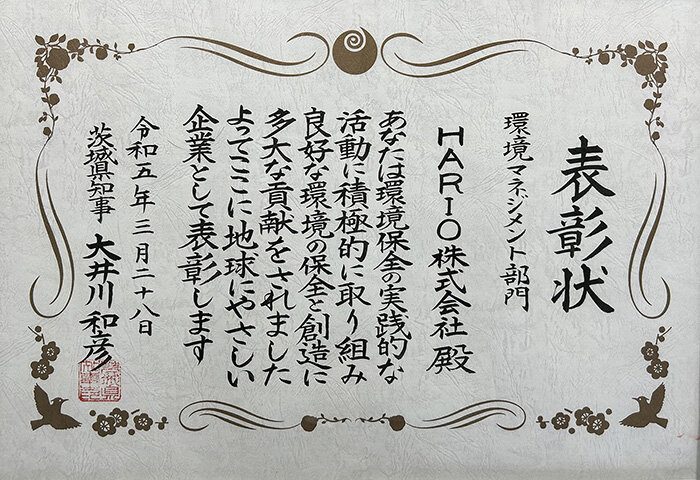 表彰状
環境マネジメント部門
HARIO株式会社 殿
あなたは環境保全の実践的な
活動に積極的に取り組み
良好な環境の保全と創造に
多大な貢献をされました
よってここに地球にやさしい
企業として表彰します
令和五年三月二十八日
茨城県知事 大井川 和彦